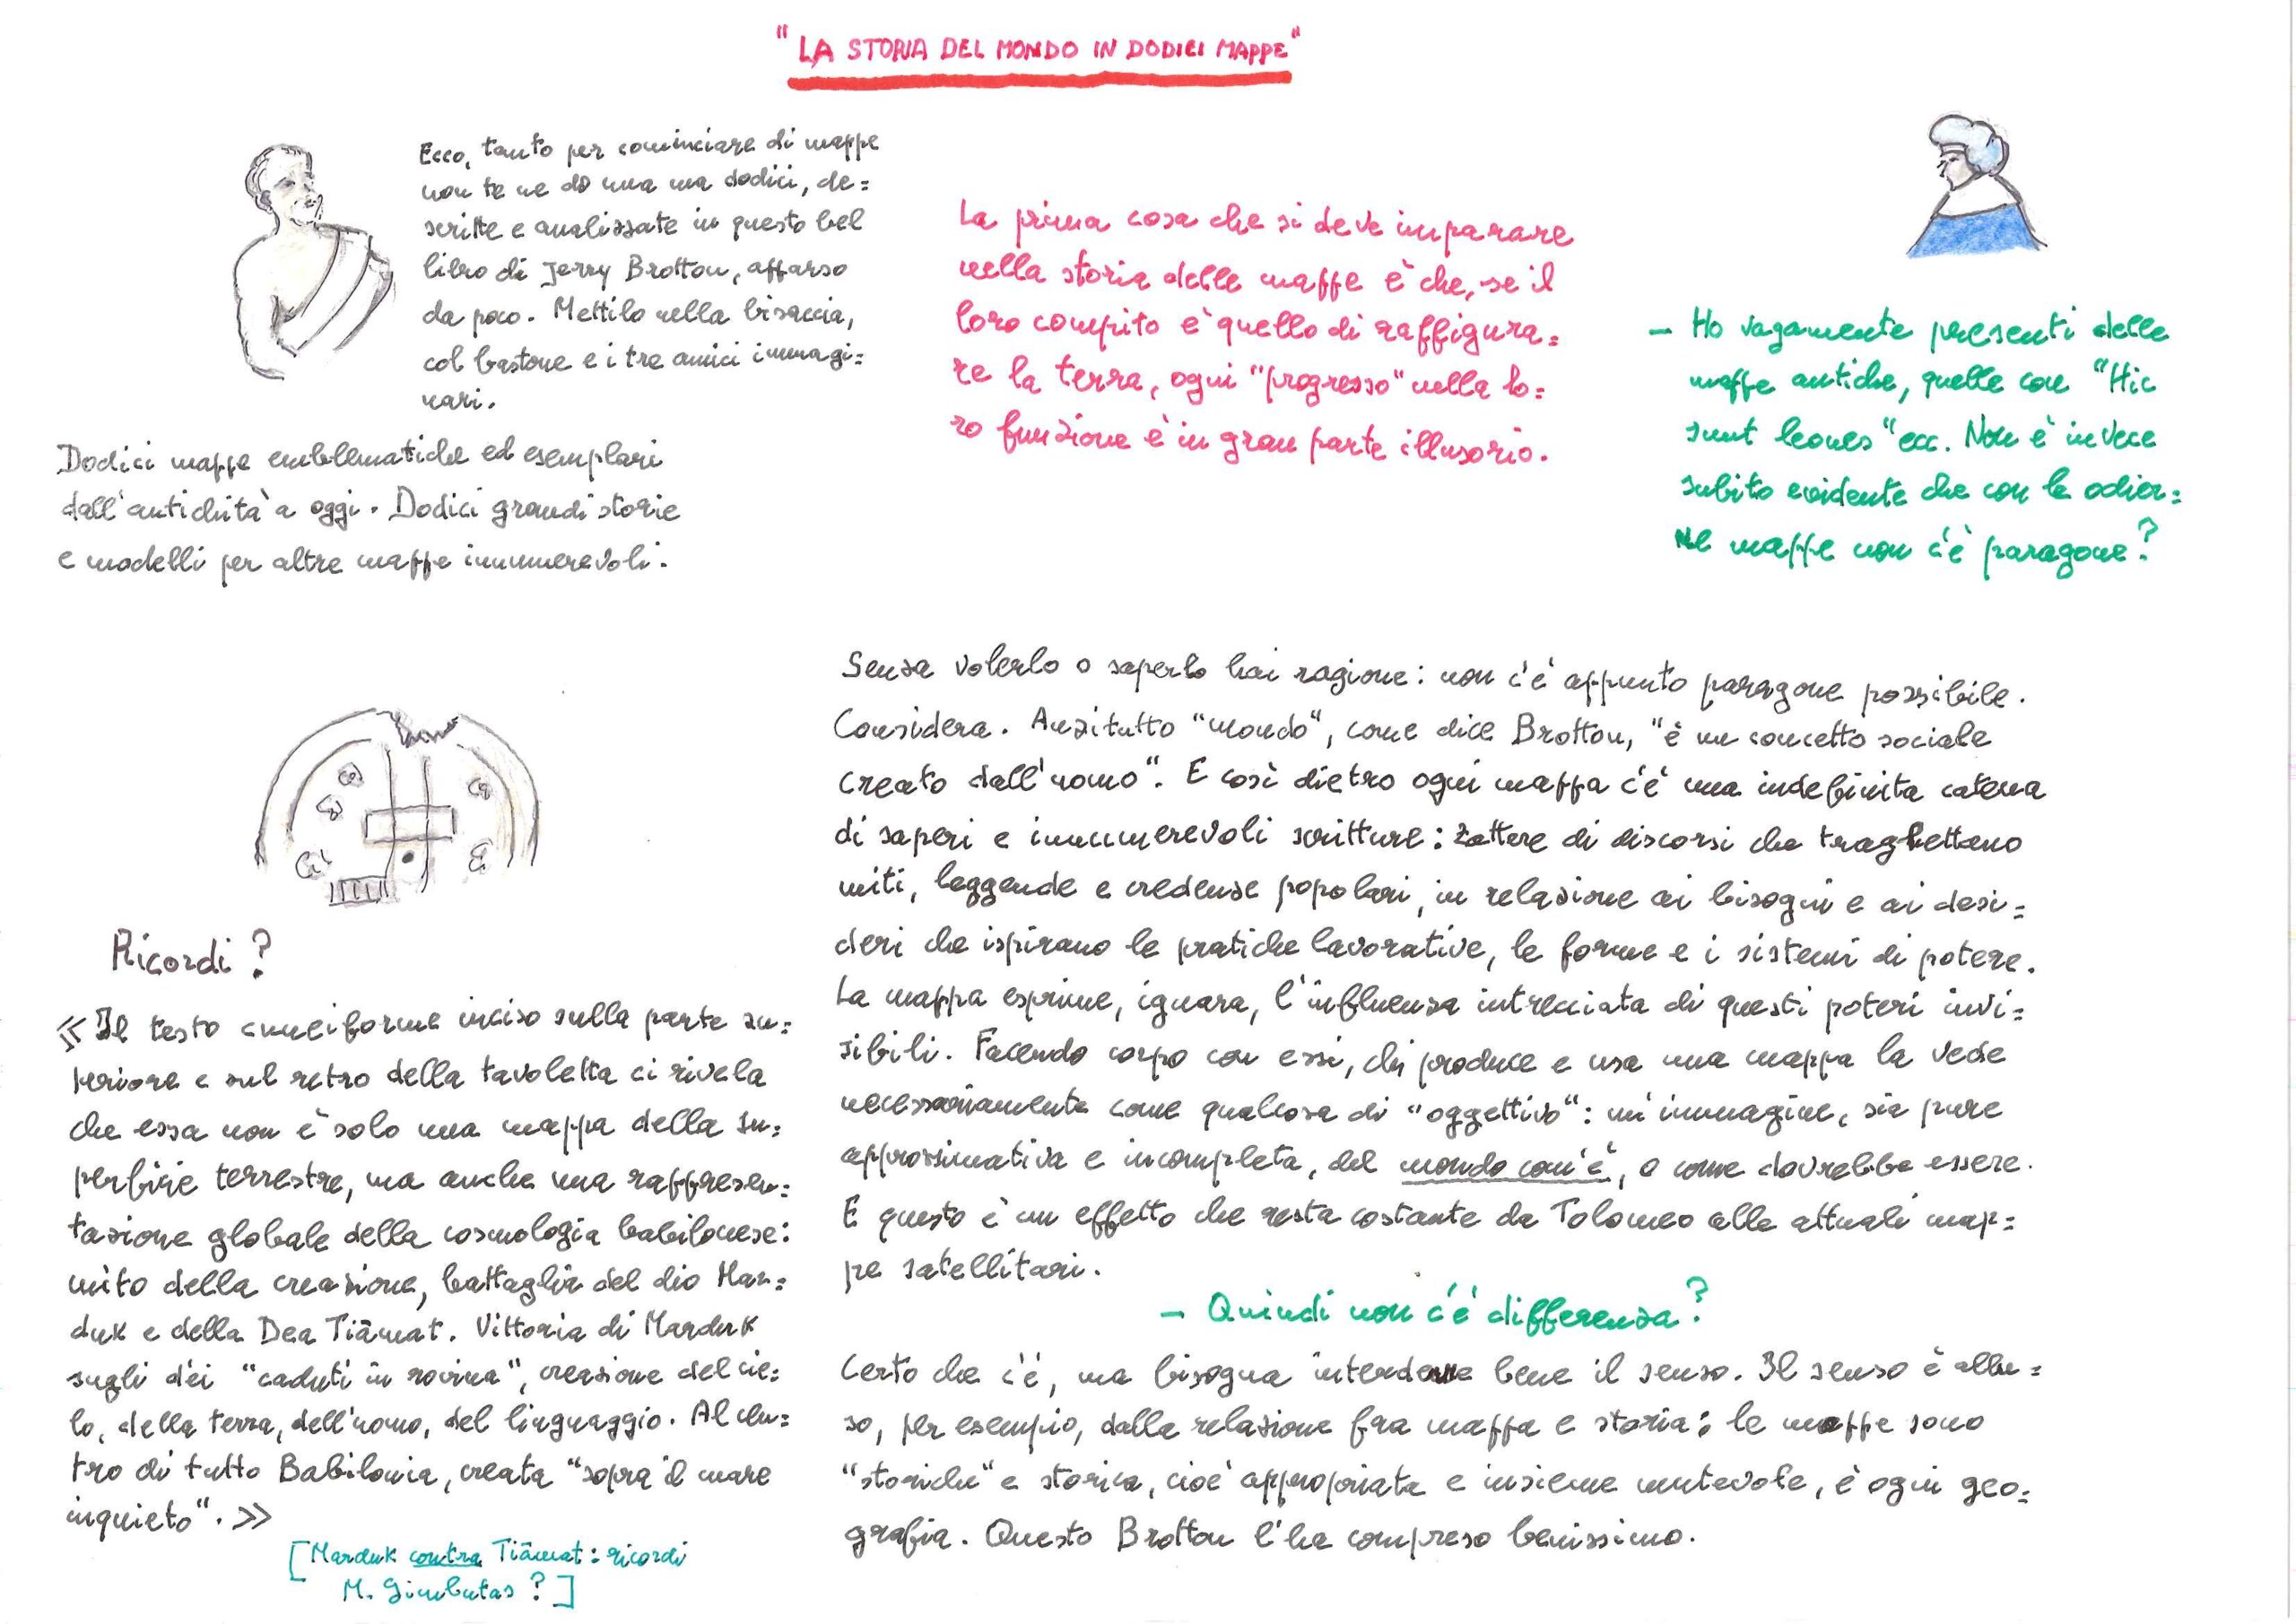 "LA STORIA DEL MONDO IN DODICI MAPPE"
Ecco, tanto per cominciare di mappe
non te ne dò una ma dodici, de=
scritte e analizzate in questo bel
libro di Jerry Brotton, apparso
da poco. Mettilo nella bisaccia,
col bastone e i tre amici immagi=
nari.
Dodici mappe emblematiche ed esemplari
dall'antichità a oggi. Dodici grandi storie
e modelli per altre mappe innumerevoli.
La prima cosa che si deve imparare
nella storia delle mappe è che, se il
loro compito è quello di raffigura=
re la terra, ogni "progresso" nella lo=
ro funzione è in gran parte illusorio.
- Ho vagamente presenti delle
mappe antiche, quelle con "Hic
sunt leones" ecc. Non è invece
subito evidente che con le odier=
ne mappe non c'è paragone?
Senza volerlo o saperlo hai ragione: non c'è appunto paragone possibile.
Considera. Anzitutto "mondo", come dice Brotton, "è un concetto sociale
creato dall'uomo". E così dietro ogni mappa c'è una indefinita catena
di saperi e innumerevoli scritture: zattere di discorsi che traghettano
miti, leggende e credenze popolari, in relazione ai bisogni e ai desi=
deri che ispirano le pratiche lavorative, le forme e i sistemi di potere.
La mappa esprime, ignara, l'influenza intrecciata di questi poteri invi=
sibili. Facendo corpo con essi, chi produce e usa una mappa la vede
necessariamente come qualcosa di "oggettivo": un'immagine, sia pure
approssimativa e incompleta, del mondo com'è, o come dovrebbe essere.
E questo è un effetto che resta costante da Tolomeo alle attuali map=
pe satellitari.
- Quindi non c'è differenza?
Certo che c'è, ma bisogna intendere bene il senso. Il senso è allu=
so, per esempio, dalla relazione fra mappa e storia: le mappe sono
"storiche" e storica, cioè appropriata e insieme mutevole, è ogni geo=
grafia. Questo Brotton l'ha compreso benissimo.
Ricordi?
«Il testo cuneiforme inciso sulla parte su=
periore e sul retro della tavoletta ci rivela
che essa non è solo una mappa della su=
perficie terrestre, ma anche una rappresen=
tazione globale della cosmologia babilonese:
mito della creazione, battaglia del dio Mar=
duk e della Dea Tiāmat. Vittoria di Marduk
sugli dèi "caduti in rovina", creazione del cie=
lo, della terra, dell'uomo, del linguaggio. Al cen=
tro di tutto Babilonia, creata "sopra il mare
inquieto".»
[Marduk contra Tiāmat: ricordi
M. Gimbutas?]